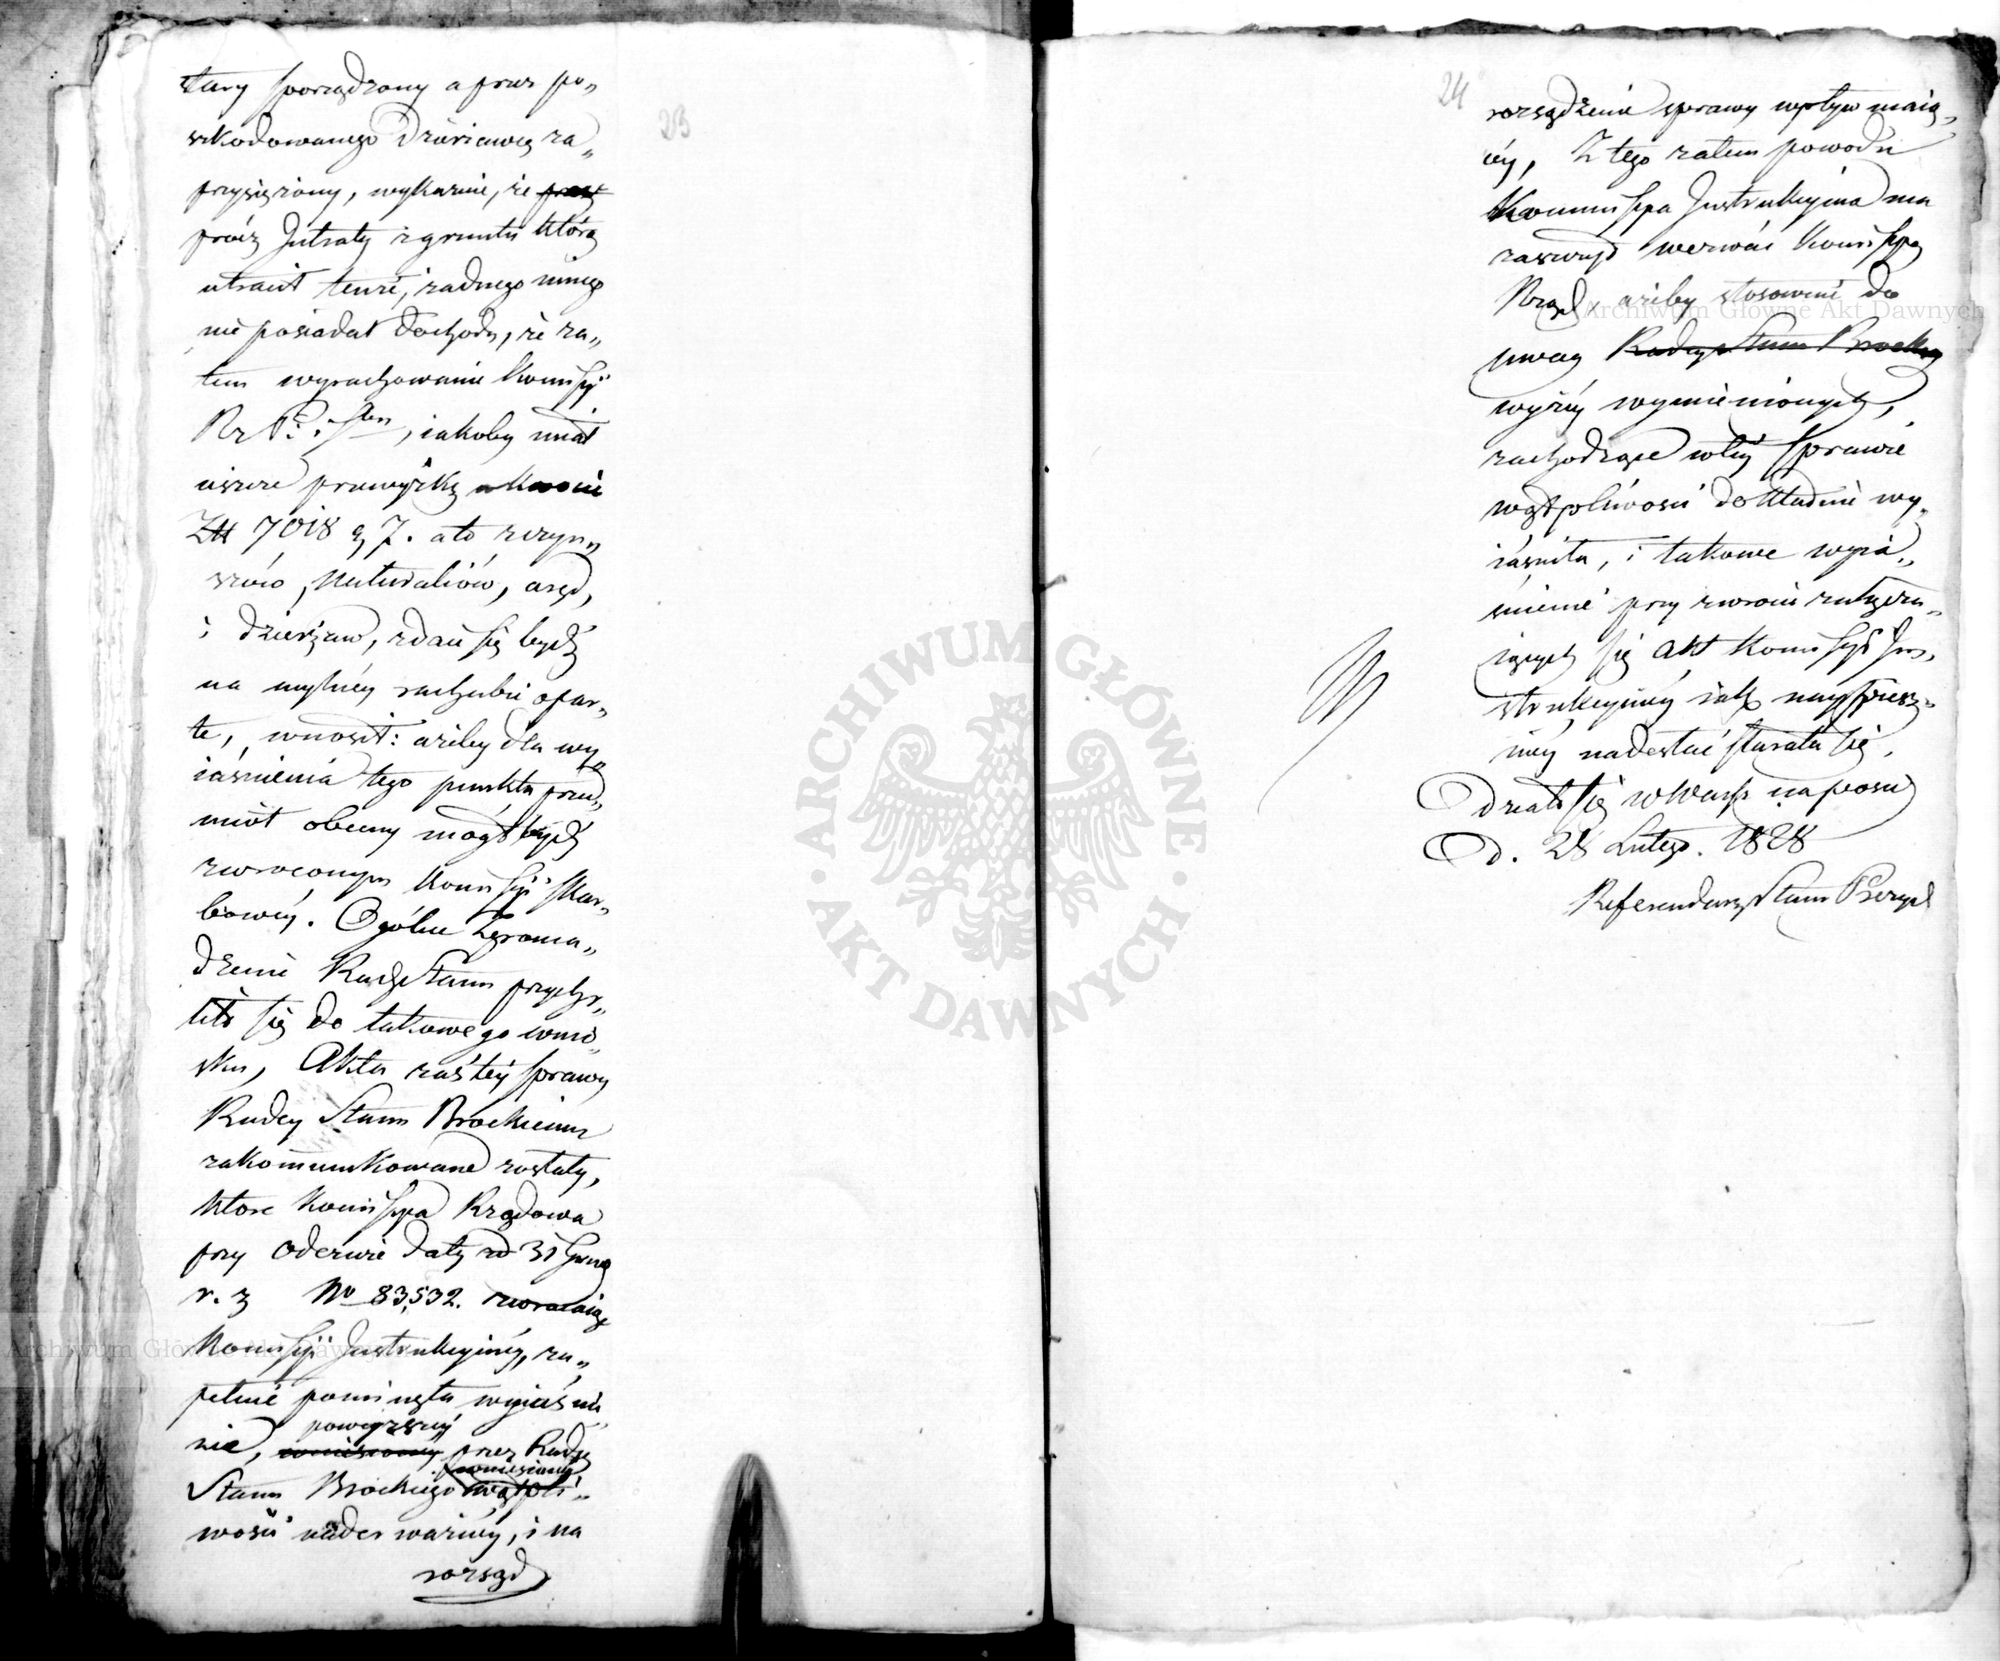 tary sporządzony a przez po„
szkodowanego Dzierżawcę za„
przysiężony, wykazuie, że przez
prócz Intraty z gruntu którą
utracił tenże, żadnego innego
nie posiadał dochodu, że za„
tem wyrachowanie Kommissyi
Rz P. i Sk, iakoby miał
ieszcze przewyżkę w kwocie
Zł 7018 g 7. a to z czyn„
szów, Naturaliów, aręd,
i dzierżaw, zdaie się bydź
na mylnéy rachubie opar„
te, wnosił: ażeby dla wy
iaśnienia tego punktu przed„
miot obecny mógł bydź
zwróconym Kommissyi Skar„
bowéy. Ogólne Zgroma„
dzenie Rady Stanu przychy„
liło się do takowego wnio„
sku, Akta zaś téy sprawy
Radcy Stanu Brockiemu
zakommunikowane zostały,
które Kommissya Rządowa
przy Odezwie daty z d 31 Grud
r. z No 83,532. zwracaiąc
Kommissyi Instrukcyinéy, zu„
pełnie pominęła wyiaśnie
nie, powyższéy
wniesionéy przez Radcę
wniesionéy
Stanu Brockiego wątpli„
wości nader ważnéy, i na
rozsąd
23
24
rozsądzenie sprawy wpływ maią„
céy, Z tego zatem powodu
Kommissya Instrukcyina ma
zaszczyt wezwać Kommissyą
Rząd, ażeby stosownie do
uwag Radcy Stanu Brockiego
wyżéy wymienionych,
zachodzące w téy sprawie
wątpliwości dokładnie wy„
iaśniła, i takowe wyia„
śnienie przy zwrocie załącza„
iących się Akt Kommissyi In„
strukcyinéy iak nayspiesz„
niéy nadesłać starała się.
Działo się w Warsz na posied
D. 28 Lutego. 1828
Referendarz Stanu
Archiwum Główne Akt Dawnych
Archiwum Główne Akt Dawnych
ARCHIWUM GŁÓWNE · AKT DAWNYCH ·